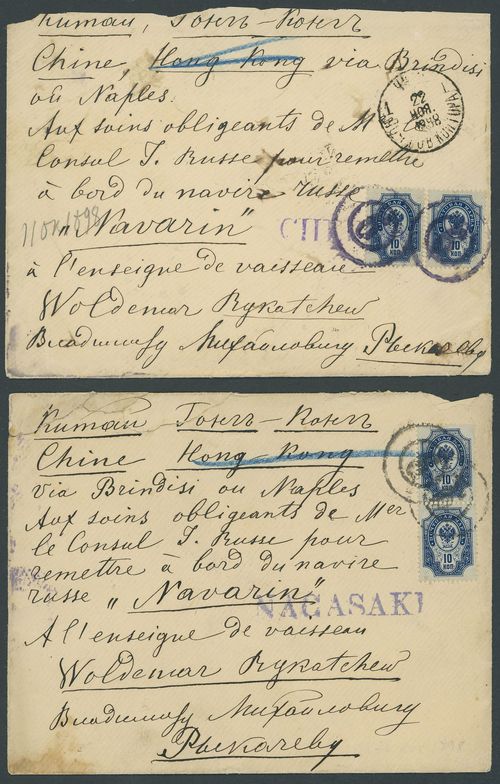 Китай, Гонгъ-Конгъ
Chine, Hong Kong via Brindisi
ou Naples.
Aux soins obligeants de M
Consul I. Russe pour remettre
à bord du navire russe
11 Oкт 1898
"Navarin"
à l'enseigne de vaisseau
Woldemar Rykatchew
Владиміру Михайловичу Рыкачеву
22
НОЯ
1898
10 10
КОП КОП
Китай Гонгъ-Конгъ
Chine Hong-Kong
via Brindisi ou Naples
Aux soins obligeants de Mer
le Consul I. Russe pour
remettre à bord du navire
russe "Navarin"
NAGASAKI
A l'enseigne de vaisseau
Woldemar Rykatchew
Владиміру Михайловичу
Рыкачеву
10
КОП
10
КОП